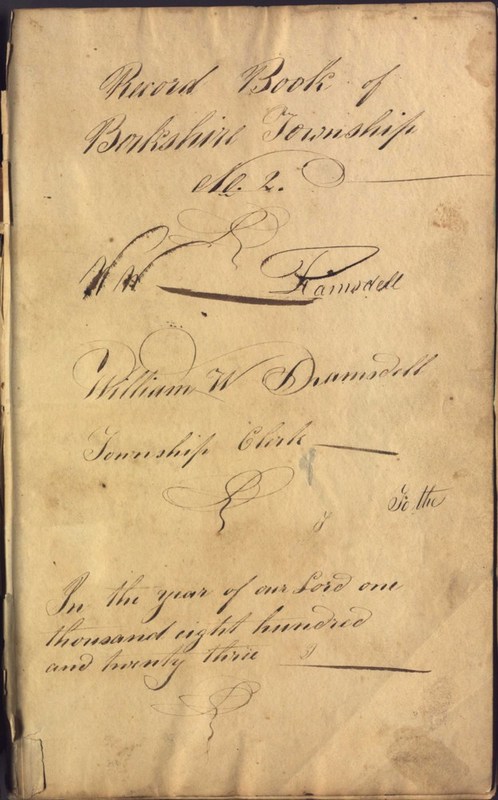 Record Book of
Berkshire Township
No. 2.
W W Ramsdell
William W Dramsdell
Township Clerk
To the
In the year of our Lord one
thousand eight hundred
and twenty three